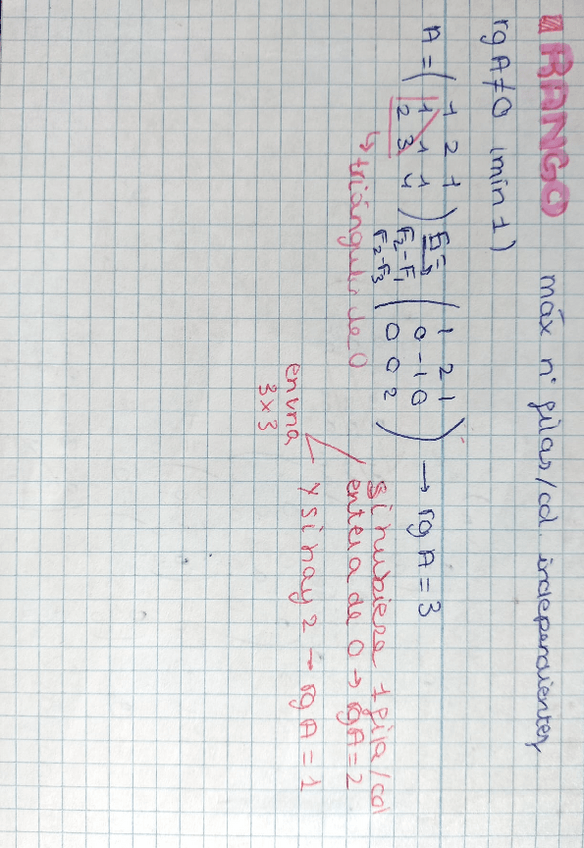 RANGO máx nº filas/col. independientes,
rg A≠0 (mín 1)
A = ( 1 2 1
1 1 1
2 3 4 )
F2-F1
F2-F3
( 1 2 1
0 -1 0
0 0 2 ) → rg A = 3
↳ triángulo de 0
en una
3x3
si hubiese 1 fila/col
entera de 0 → rg A = 2
Y si hay 2 → rg A = 1